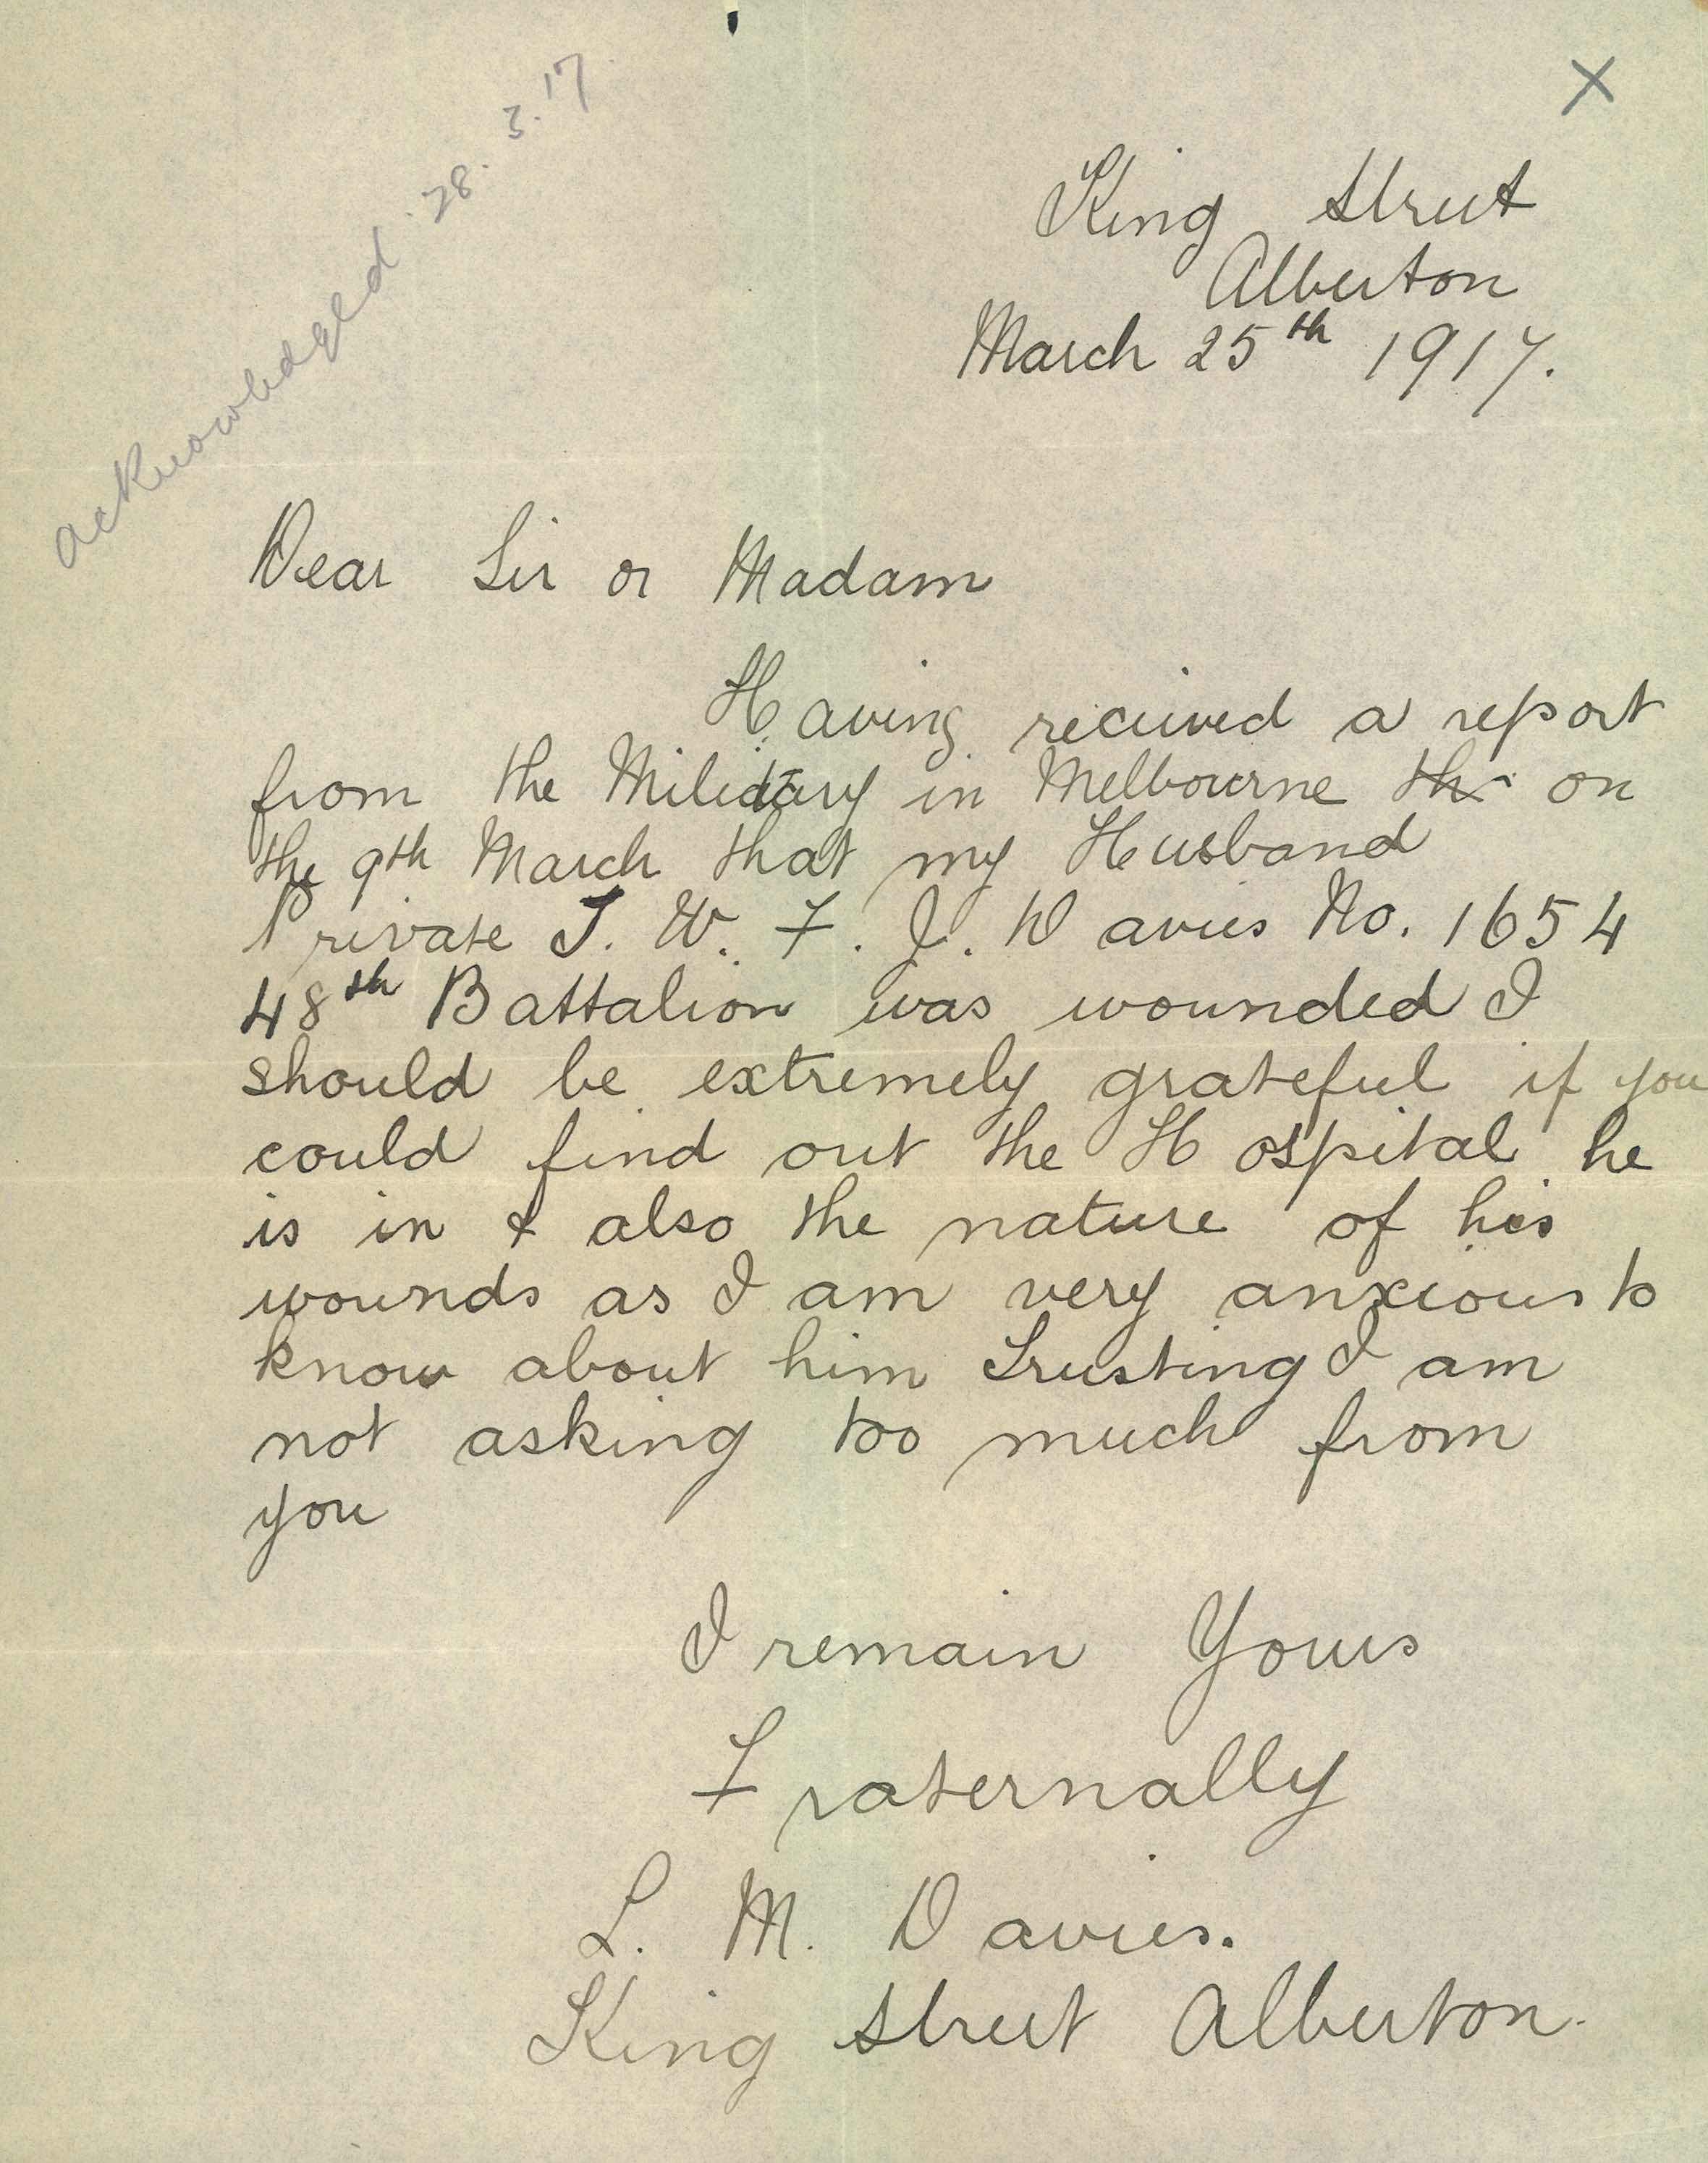 acknowledged 28.3.'17
X
King Street
Alberton
March 25th 1917.
Dear Sir or Madam
Having recieved a report
from the Military in Melbourne th on
the 9th March that my Husband
Private J. W. F. J. Davies No. 1654
48th Battalion was wounded I
should be extremely grateful if you
could find out the Hospital he
is in & also the nature of his
wounds as I am very anxious to
know about him Trusting I am
not asking too much from
you
I remain Yours
Fraternally
L. M. Davies.
King Street Alberton.